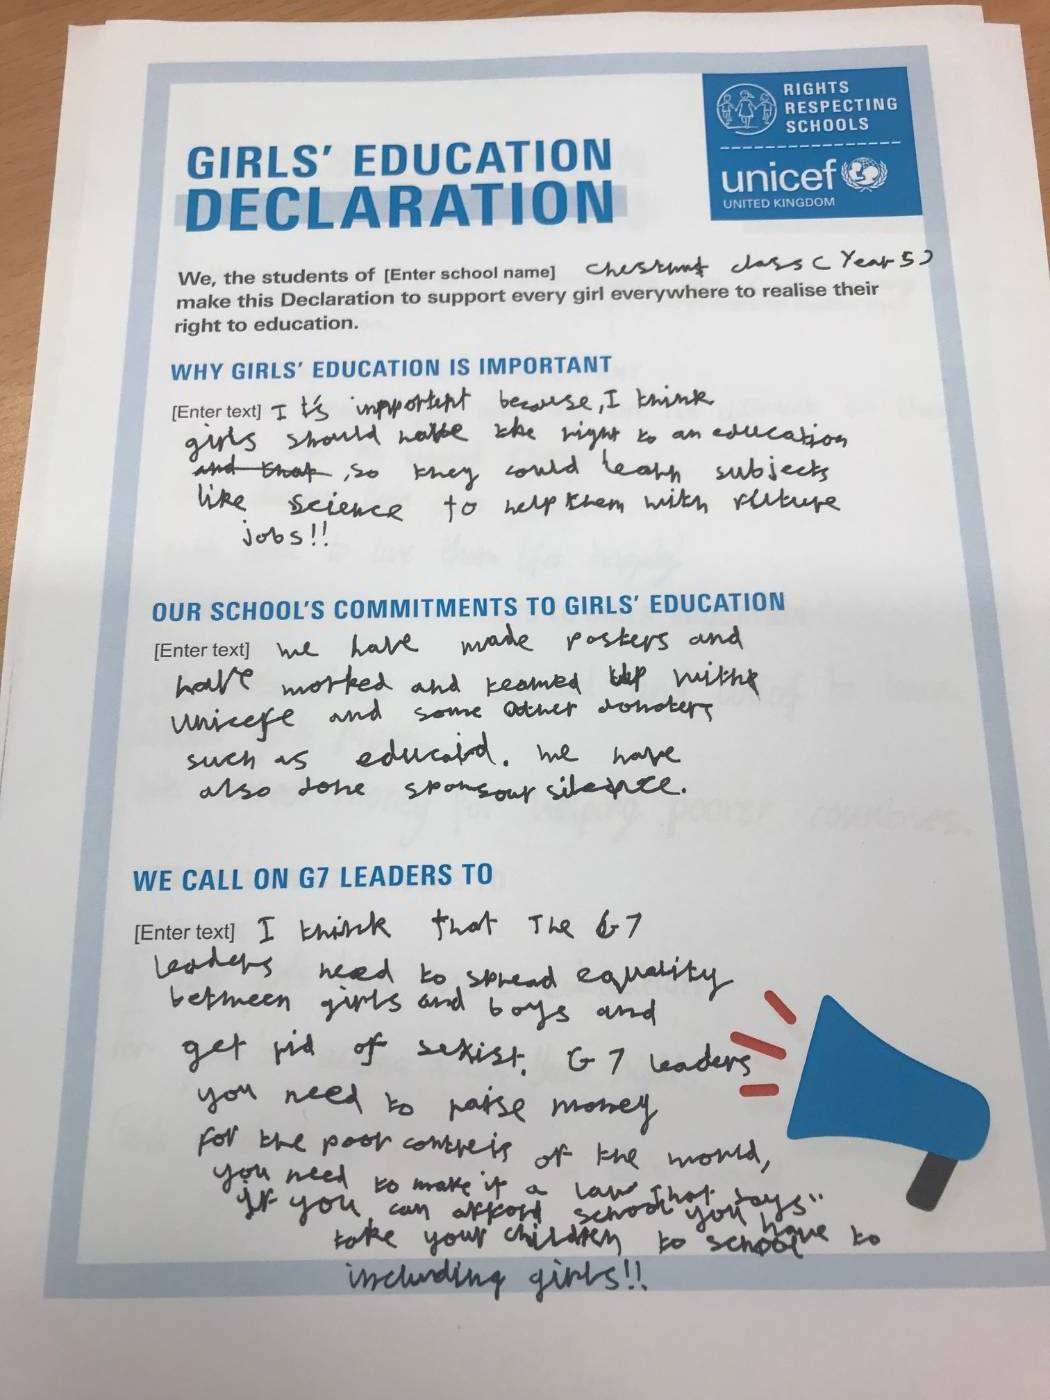 RIGHTS
RESPECTING
SCHOOLS
unicef
UNITED KINGDOM
GIRLS' EDUCATION
DECLARATION
We, the students of [Enter school name] chestnut class (Year 5)
make this Declaration to support every girl everywhere to realise their
right to education.
WHY GIRLS' EDUCATION IS IMPORTANT
[Enter text] It's inpportent because, I think
girls should have the right to an education
and that, so they could learn subjects
like science to help them with future
jobs!!
OUR SCHOOL'S COMMITMENTS TO GIRLS' EDUCATION
[Enter text] we have made posters and
have worked and teamed up with
unicefe and some other donoters
such as educaid. we have
also done sponsour silence.
WE CALL ON G7 LEADERS TO
[Enter text] I think that The G7
leaders need to spread equality
between girls and boys and
get rid of sexist. G7 leaders
you need to raise money
for the poor contreis of the world,
you need to make it a law that says"
if you can afford school you have to
take your children to school
including girls!!